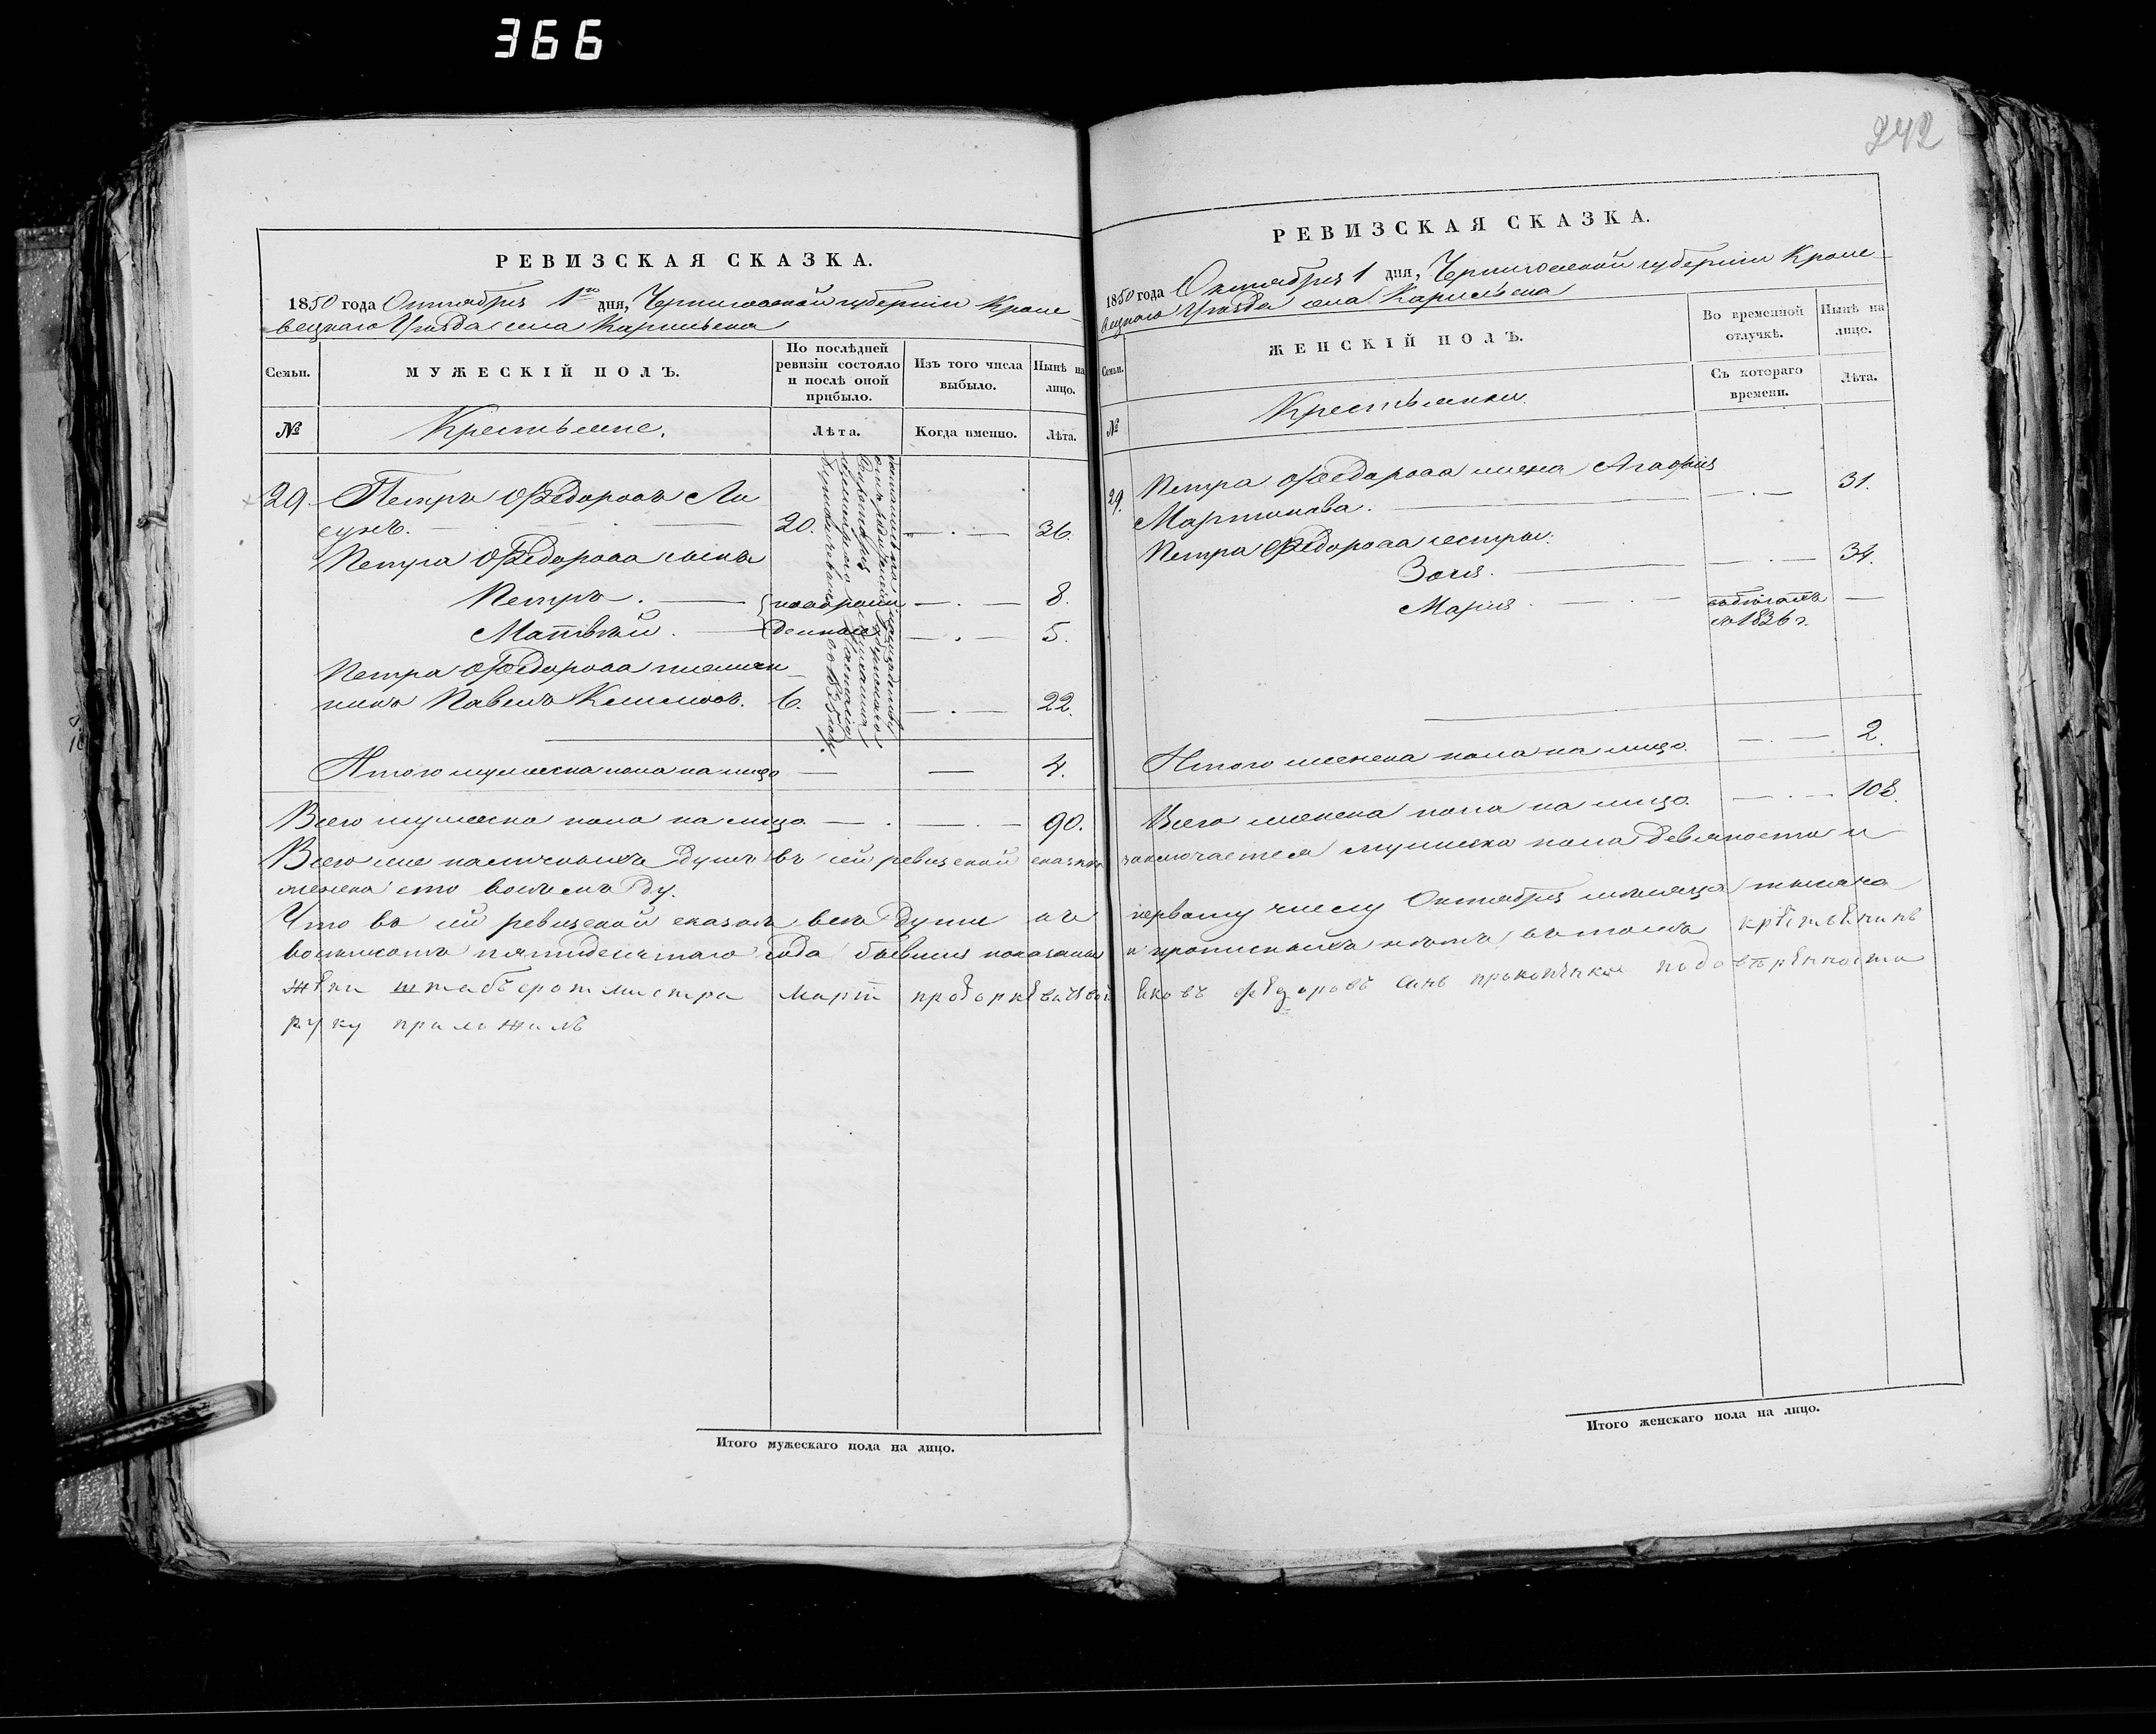 366
242
РЕВИЗСКАЯ СКАЗКА.
1850 года Октября 1го дня, Черниговской губернiи Кроле-
вецкаго Уѣзда села Карильска
Семьи.
МУЖЕСКІЙ ПОЛЪ.
По послѣдней ревизіи состояло и послѣ оной прибыло.
Изъ того числа выбыло.
Нынѣ на лицо.
№
Крестьяне.
Лѣта.
Когда именно.
Лѣта.
29. Петръ Федоровъ Ли
сунъ. 20. 36.
Петра Федорова сыны
Петръ. новорож 8.
Матвѣй. денные 5.
Петра Федорова племян-
никъ Павелъ Климовъ. 6. 22.
Итого мужеска пола на лицо 4.
Всего мужеска пола на лицо 90.
Всего же наличныхъ душъ въ сей ревизской сказкѣ
женска сто восемъ ду.
Что въ сей ревизской сказкѣ всѣ души къ
восемьсотъ пятидесятаго года бывшія показаны
жѣни штабъ ротмистра
руку приложилъ
Итого мужескаго пола на лицо.
РЕВИЗСКАЯ СКАЗКА.
1850 года Октября 1 дня, Черниговской губерніи Кроле-
вецкаго Уѣзда села Карильска
Семьи.
ЖЕНСКІЙ ПОЛЪ.
Во временной отлучкѣ.
Нынѣ на лицо.
№
Крестьянки.
Съ котораго времени.
Лѣта.
29. Петра Федорова жена Агафія
Мартинова. 31.
Петра Федорова сестры:
Зося. 34.
Марія. въ бѣгахъ
съ 1836 г.
Итого женска пола на лицо. 2.
Всего женска пола на лицо. 108.
заключается мужеска пола девяносто и
первому числу Октября мѣсяца тысяча
и прописныхъ нѣтъ, въ томъ крѣстьѣнинъ
ѣковъ фѣдоровъ синъ
Итого женскаго пола на лицо.